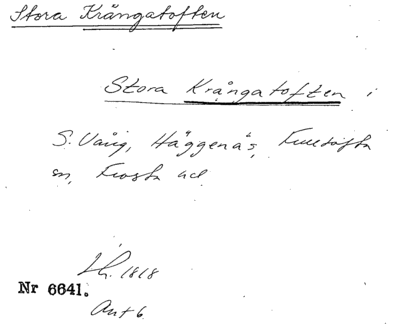 Stora Krångatoften
Stora Krångatoften i
S. Vång, Häggenäs, Fulltofta
sn, Frosta hd
1818
Nr 6641.
Ant 6.